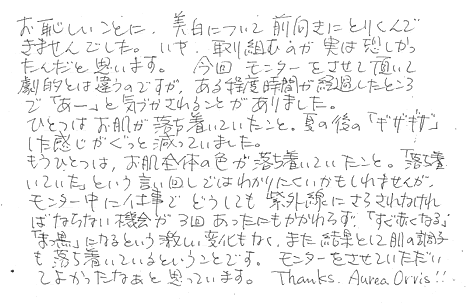 お恥しいことに、美白について前向きにとりくんで
きませんでした。いや、取り組むのが実は恐しかっ
たんだと思います。 今回モニターをさせて頂いて
劇的とは違うのですが、ある程度時間が経過したところ
で「あー」と気づかされることがありました。
ひとつはお肌が落ち着いていたこと。夏の後の「ギザギザ」
した感じがぐっと減っていました。
もうひとつは、お肌全体の色が落ち着いていたこと。「落ち着
いていた」という言い回しではわかりにくいかもしれませんが、
モニター中に仕事でどうしても紫外線にさらされなけれ
ばならない機会が3回あったにもかかわらず、「すぐ赤くなる」
「まっ黒」になるという激しい変化もなく、また結果として肌の調子
も落ち着いているということです。 モニターをさせていただい
てよかったなぁと思っています。 Thanks. Aurea Orvis!!